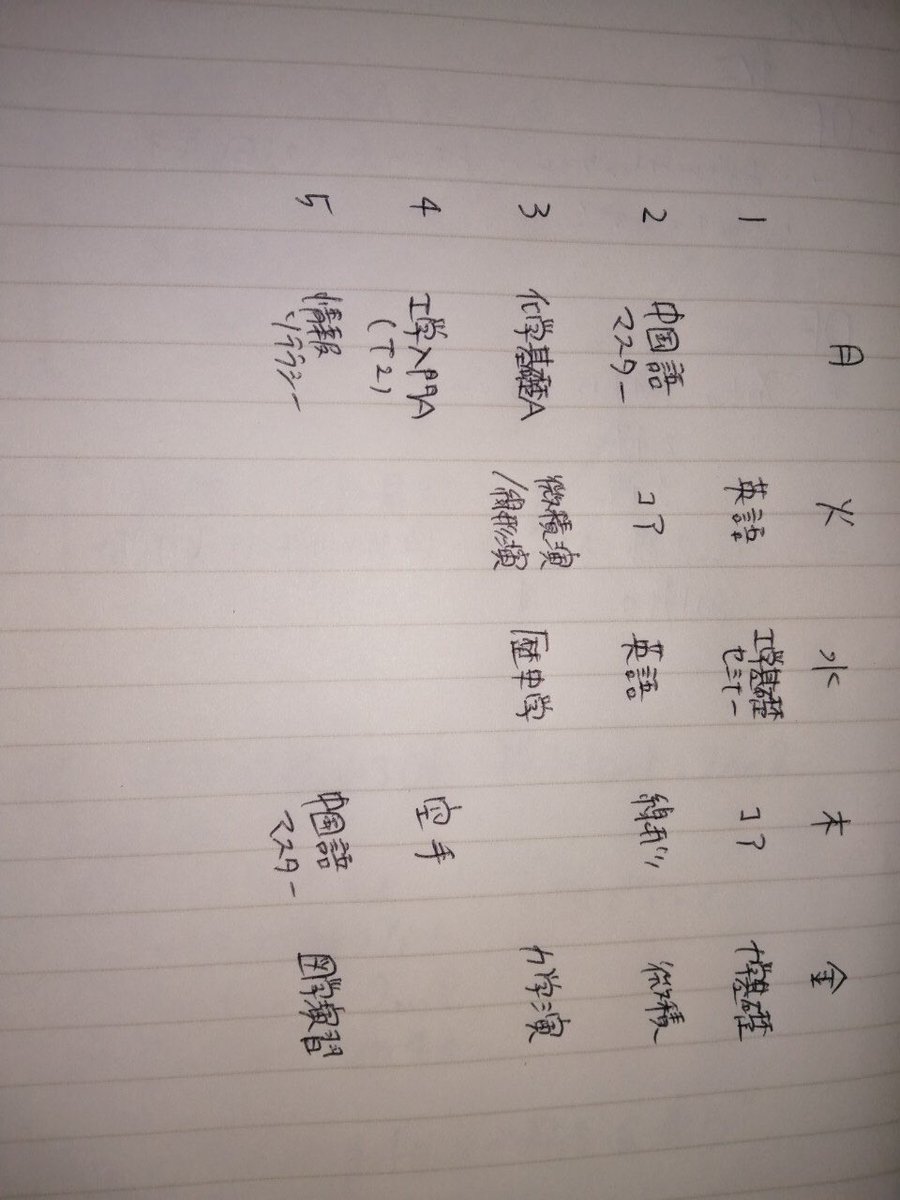 月 火 水 木 金
1 英語 工学基礎 コア 力学基礎
セミナー
2 中国語 コア 英語 線形 微積
マスター
3 化学基礎A 微積演 歴史学 力学演
/線形演
4 工学入門A 空手
(T2)
5 情報 中国語 図学演習
リテラシー マスター